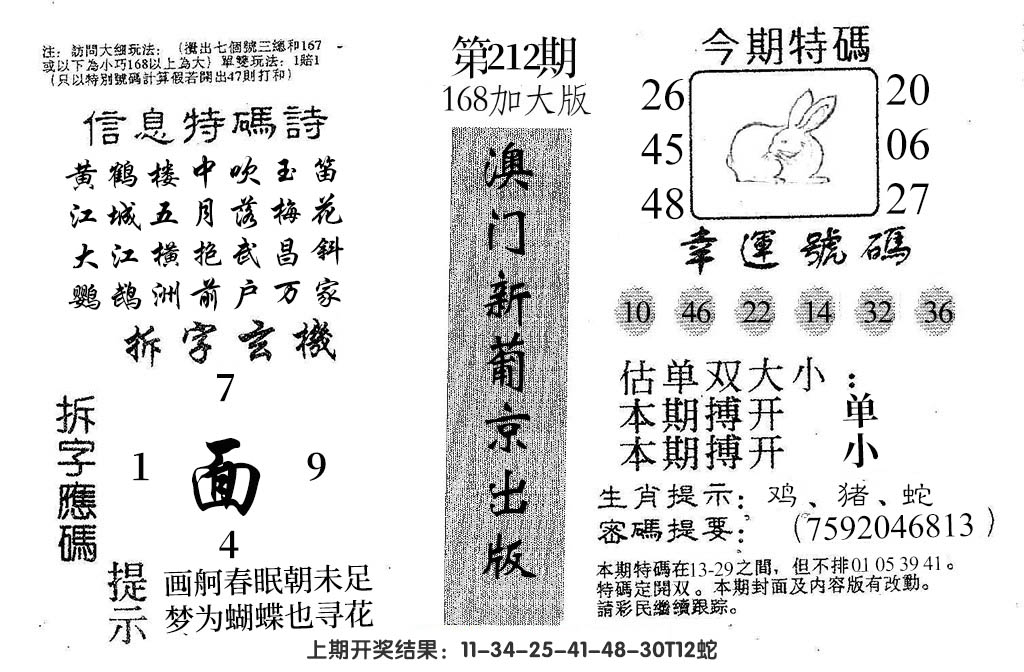 注：訪問大細玩法：（攪出七個號三總和167
或以下為小巧168以上為大）單雙玩法：1賠1
（只以特別號碼計算假若開出47則打和）
信息特碼詩
黄鹤楼中吹玉笛
江城五月落梅花
大江横抱武昌斜
鹦鹉洲前户万家
拆字玄機
拆字應碼
7
1
面
9
4
提示
画舸春眠朝未足
梦为蝴蝶也寻花
第212期
168加大版
澳门新葡京出版
今期特碼
26
45
48
20
06
27
幸運號碼
10 46 22 14 32 36
估单双大小：
本期搏开 单
本期搏开 小
生肖提示：鸡、猪、蛇
密碼提要：（7592046813）
本期特碼在13-29之間，但不排01 05 39 41。
特碼定開双。本期封面及内容版有改動。
請彩民繼續跟踪。
上期开奖结果：11-34-25-41-48-30T12蛇